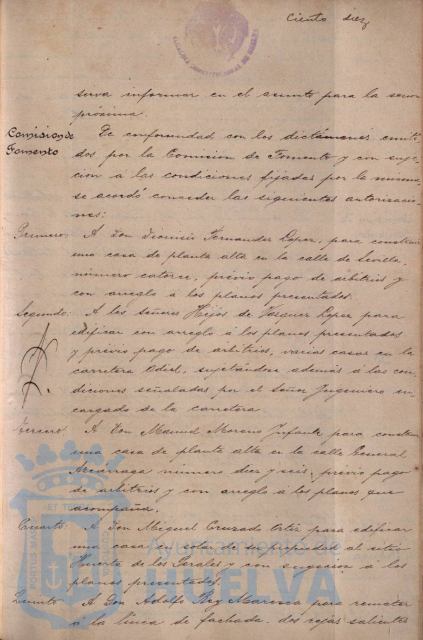 Ciento diez
sirva informar en el asunto para la sesion
próxima.
Comision de
Fomento
De conformidad con los dictámenes emiti-
dos por la Comision de Fomento y con suge-
cion á las condiciones fijadas por la misma
se acordó conceder las siguientes autorizacio-
nes:
Primero: A Don Dionisio Fernandez Lopez, para construir
una casa de planta alta en la calle de Sevilla,
número catorce, previo pago de arbitrios y
con arreglo á los planos presentados.
Segundo: A los señores Hijos de Vazquez Lopez para
edificar con arreglo á los planos presentados
y previo pago de arbitrios, varias casas en la
carretera Odiel, sujetándose además á las con-
diciones señaladas por el Señor Ingeniero en-
cargado de la carretera.
Tercero: A Don Manuel Moreno Infante para construir
una casa de planta alta en la calle General
Azcárraga número diez y seis, previo pago
de arbitrios y con arreglo á los planos que
acompaña.
Cuarto: A Don Miguel Cruzado Ortiz para edificar
una casa en solar de su propiedad al sitio
Huerta de los Perales y con sugecion á los
planos presentados.
Quinto: A Don Adolfo Rey Marenca para remeter
á la linea de fachada, dos rejas salientes
Ayuntamiento de
HUELVA